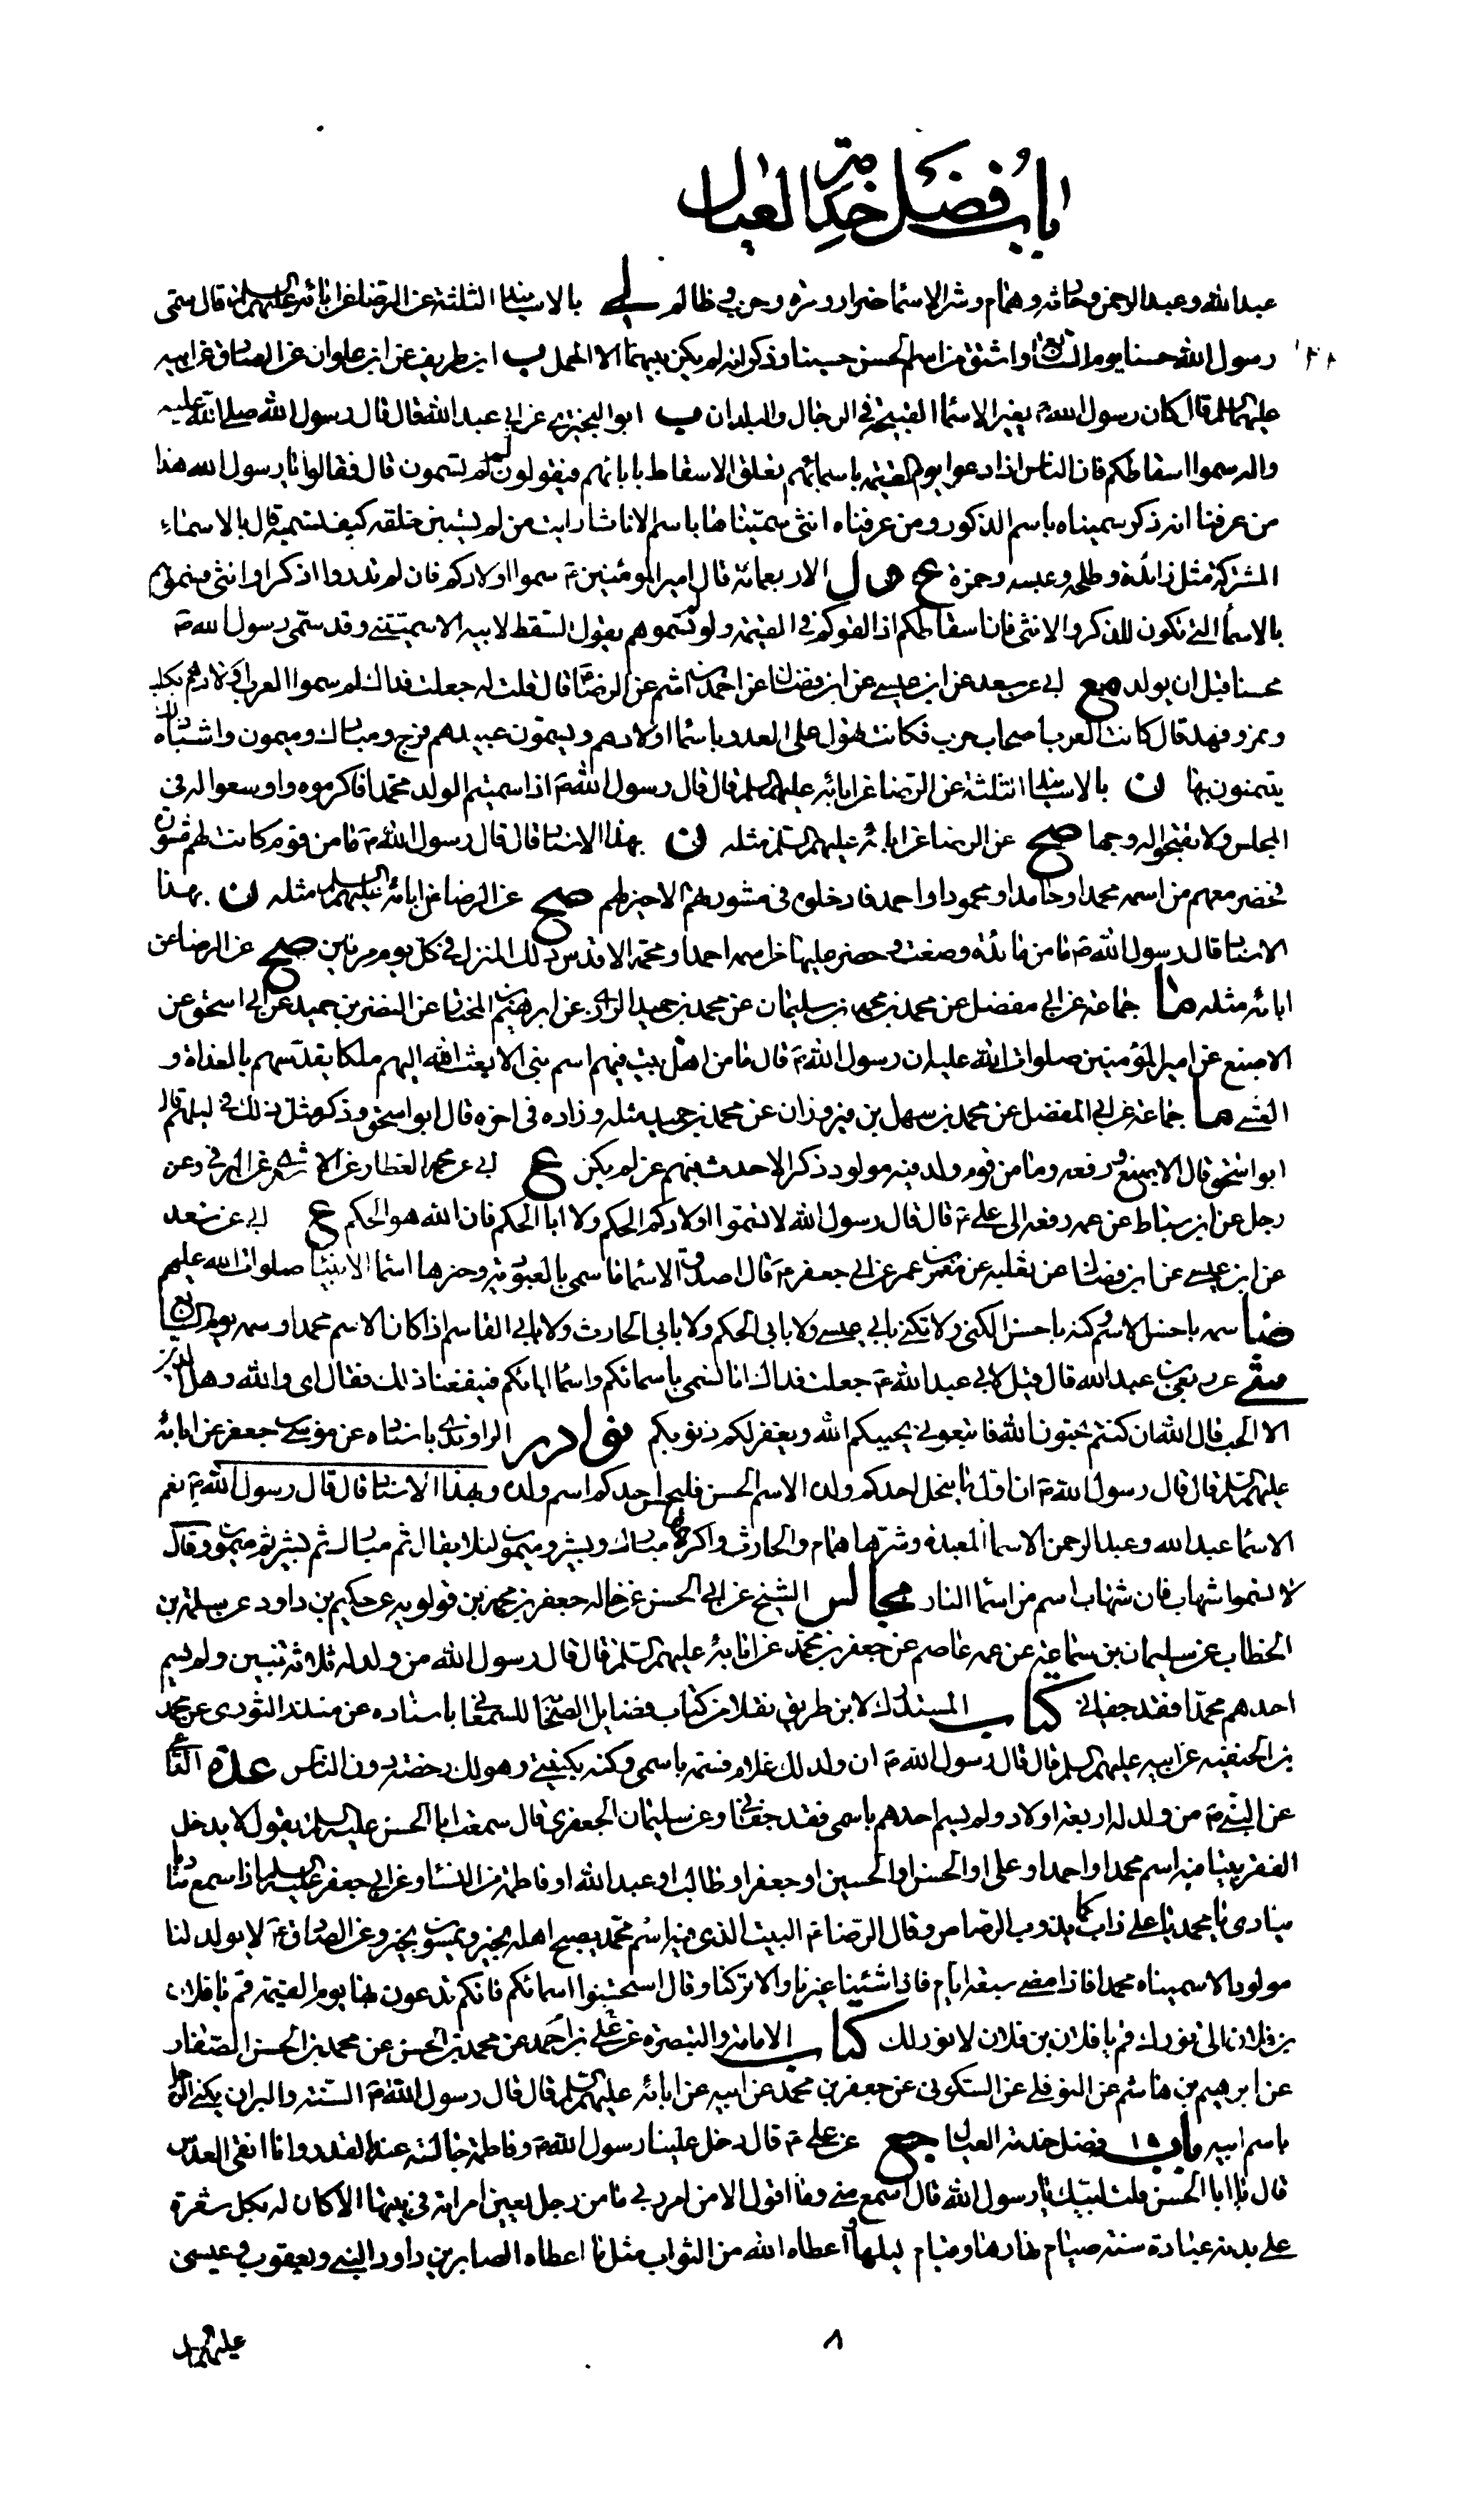 باب فضل خدمة العيال
عبدالله وعبدالرحمن وحارثه وهمام وشر الاسما ضرار ومره وحرب وظالم لى بالاسانيد الثلثة عن الرضا عن ابائه عليهم السلم انه قال سمى
رسول الله حسنا يوم السابع واشتق من اسم الحسن حسينا وذكر انه لم يكن بينهما الا الحمل ب ابن طريف عن ابن علوان عن الصادق عن ابيه
عليهما السلم قال كان رسول الله ص يغير الاسما القبيحة فى الرجال والبلدان ب ابو البخترى عن ابى عبدالله قال قال رسول الله صلى الله عليه
واله سموا اسقاطكم فان الناس اذا دعوا يوم القيمه باسمائهم تعلق الاسقاط بابائهم فيقولون لم لم تسمون قال فقالوا يا رسول الله هذا
من عرفنا انه ذكر سميناه باسم الذكور ومن عرفناه انثى سميناها باسم الاناث ارايت من لم يستبن خلقه كيف نسميه قال بالاسماء
المشتركة مثل زائدة وطلحه وعنبسه وحمزة ع ل الاربعمائة قال امير المومنين ع سموا اولادكم فان لم تدروا اذكر او انثى فسموهم
بالاسمأ التى تكون للذكر والانثى فان اسقاطكم اذا لقوكم فى القيمة ولم تسموهم يقول السقط لابيه الا سميتنى وقد سمى رسول الله ص
محسنا قبل ان يولد مع ابى عن سعد عن ابن عيسى عن ابن فضال عن احمد بن اشيم عن الرضا ع قال قلت له جعلت فداك لم سموا العرب اولادهم بكلب
ونمر وفهد قال كانت العرب اصحاب حرب فكانت تهول على العدو باسما اولادهم ويسمون عبيدهم فرج ومبارك وميمون واشباه ذلك
يتيمنون بها ن بالاسانيد الثلثة عن الرضا عن ابائه عليهم السلم قال قال رسول الله ص اذا سميتم الولد محمدا فاكرموه واوسعوا له فى
المجلس ولا تقبحوا له وجها صح عن الرضا عن ابائه عليهم السلم مثله ن بهذا الاسناد قال قال رسول الله ص ما من قوم كانت لهم مشورة
فحضر معهم من اسمه محمد او حامد او محمود او احمد فادخلوه فى مشورتهم الا خير لهم صح عن الرضا عن ابائه عليهم السلم مثله ن بهذا
الاسناد قال رسول الله ص ما من مائدة وضعت وحضر عليها من اسمه احمد او محمد الا قدس ذلك المنزل فى كل يوم مرتين صح عن الرضا عن
ابائه مثله ما جماعة عن ابى مفضل عن محمد بن محمد بن سليمان عن محمد بن حميد الرازى عن ابرهيم بن المختار عن النضر بن حميد عن ابى اسحق عن
الاصبغ عن امير المؤمنين صلوات الله عليه ان رسول الله ص قال ما من اهل بيت فيهم اسم نبى الا بعث الله اليهم ملكا يقدسهم بالغداة و
العشى ما جماعة عن ابى المفضل عن محمد بن سهل بن فيروزان عن محمد بن حميد مثله وزاده فى اخره قال ابو اسحق وذكر مثل ذلك فى ليلتهم قال
ابو اسحق قال الاصبغ ورفعه وما من قوم ولد فيه مولود ذكر الا حدث فيهم عز لم يكن ع ابى عن محمد العطار عن الاشعرى عن البرقى عن
رجل عن ابن سباط عن عمه رفعه الى على ع قال قال رسول الله لا تسموا اولادكم الحكم ولا ابا الحكم فان الله هو الحكم ع ابى عن سعد
عن ابن عيسى عن ابن فضال عن ثعلبه عن معمر بن عمر عن ابى جعفر ع قال اصدق الاسما ما سمى بالعبودية وخيرها اسما الانبيا صلوات الله عليهم
ضا سمه باحسن الاسم وكنه باحسن الكنى ولا تكنى بابى عيسى ولا بابى الحكم ولا بابى الحارث ولا بابى القاسم اذا كان الاسم محمدا وسمه يوم السابع
شى عن ربعى بن عبدالله قال قيل لابى عبدالله ع جعلت فداك انا نسمى باسمائكم واسما ابائكم فينفعنا ذلك فقال اى والله وهل الدين
الا الحب قال الله ان كنتم تحبون الله فاتبعونى يحببكم الله ويغفر لكم ذنوبكم نوادر الراوندى باسناده عن موسى بن جعفر عن ابائه
عليهم السلم قال قال رسول الله ص ان اول ما ينحل احدكم ولده الاسم الحسن فليحسن احدكم اسم ولده وبهذا الاسناد قال قال رسول الله ص نعم
الاسما عبدالله وعبدالرحمن الاسما المعبدة وشرها همام والحارث واكره مبارك وبشير وميمون لئلا يقال ثم مبارك ثم بشير ثم ميمون وقال
لا تسموا شهاب فان شهاب اسم من اسما النار مجالس الشيخ عن ابى الحسن عن خاله جعفر بن محمد بن قولويه عن حكيم بن داود عن سلمة بن
الخطاب عن سليمان بن سماعه عن عمه عاصم عن جعفر بن محمد عن ابائه عليهم السلم قال قال رسول الله من ولد له ثلاثة بنين ولم يسم
احدهم محمدا فقد جفانى كتاب المستدرك لابن طريق نقلا من كتاب فضايل الصحابة للسمعانى باسناده عن منذر الثورى عن محمد
بن الحنفيه عن ابيه عليهم السلم قال قال رسول الله ص ان ولد لك غلام فسمه باسمى وكنه بكنيتى وهو لك رخصة دون الناس عدة الداعى
عن النبى ص من ولد له اربعة اولاد ولم يسم احدهم باسمى فقد جفانى وعن سليمان الجعفرى قال سمعت ابا الحسن عليه السلم يقول لا يدخل
الفقر بيتا فيه اسم محمد او احمد او على او الحسن او الحسين او جعفر او طالب او عبدالله او فاطمة من النسا وعن ابى جعفر عليه السلم اذا سمع شيطان
مناد ينادى يا محمد يا على ذاب كما يذوب الرصاص وقال الرضا ع البيت الذى فيه اسم محمد يصبح اهله بخير ويمسون بخير وعن الصادق ع لا يولد لنا
مولود الا سميناه محمدا فاذا مضى سبعة ايام فاذا شئنا غيرنا والا تركنا وقال استحسنوا اسمائكم فانكم تدعون بها يوم القيمة قم يا فلان
بن فلان الى نورك قم يا فلان بن فلان لا نور لك كتاب الامامة والتبصرة عن على بن احمد عن محمد بن الحسن عن محمد بن الحسن الصفار
عن ابرهيم بن هاشم عن النوفلى عن السكونى عن جعفر بن محمد عن ابيه عن ابائه عليهم السلم قال قال رسول الله ص السنة والبر ان يكنى الرجل
باسم ابيه باب فضل خدمة العيال جع عن على ع قال دخل علينا رسول الله ص وفاطمة جالسة عند القدر وانا انقى العدس
قال يا ابا الحسن قلت لبيك يا رسول الله قال اسمع منى وما اقول الا من امر ربى ما من رجل يعين امراته فى بيتها الا كان له بكل شعرة
على بدنه عبادة سنة صيام نهارها وقيام ليلها واعطاه الله من الثواب مثل ما اعطاه الصابرين داود النبى ويعقوب وعيسى
٨
عليهم السلم